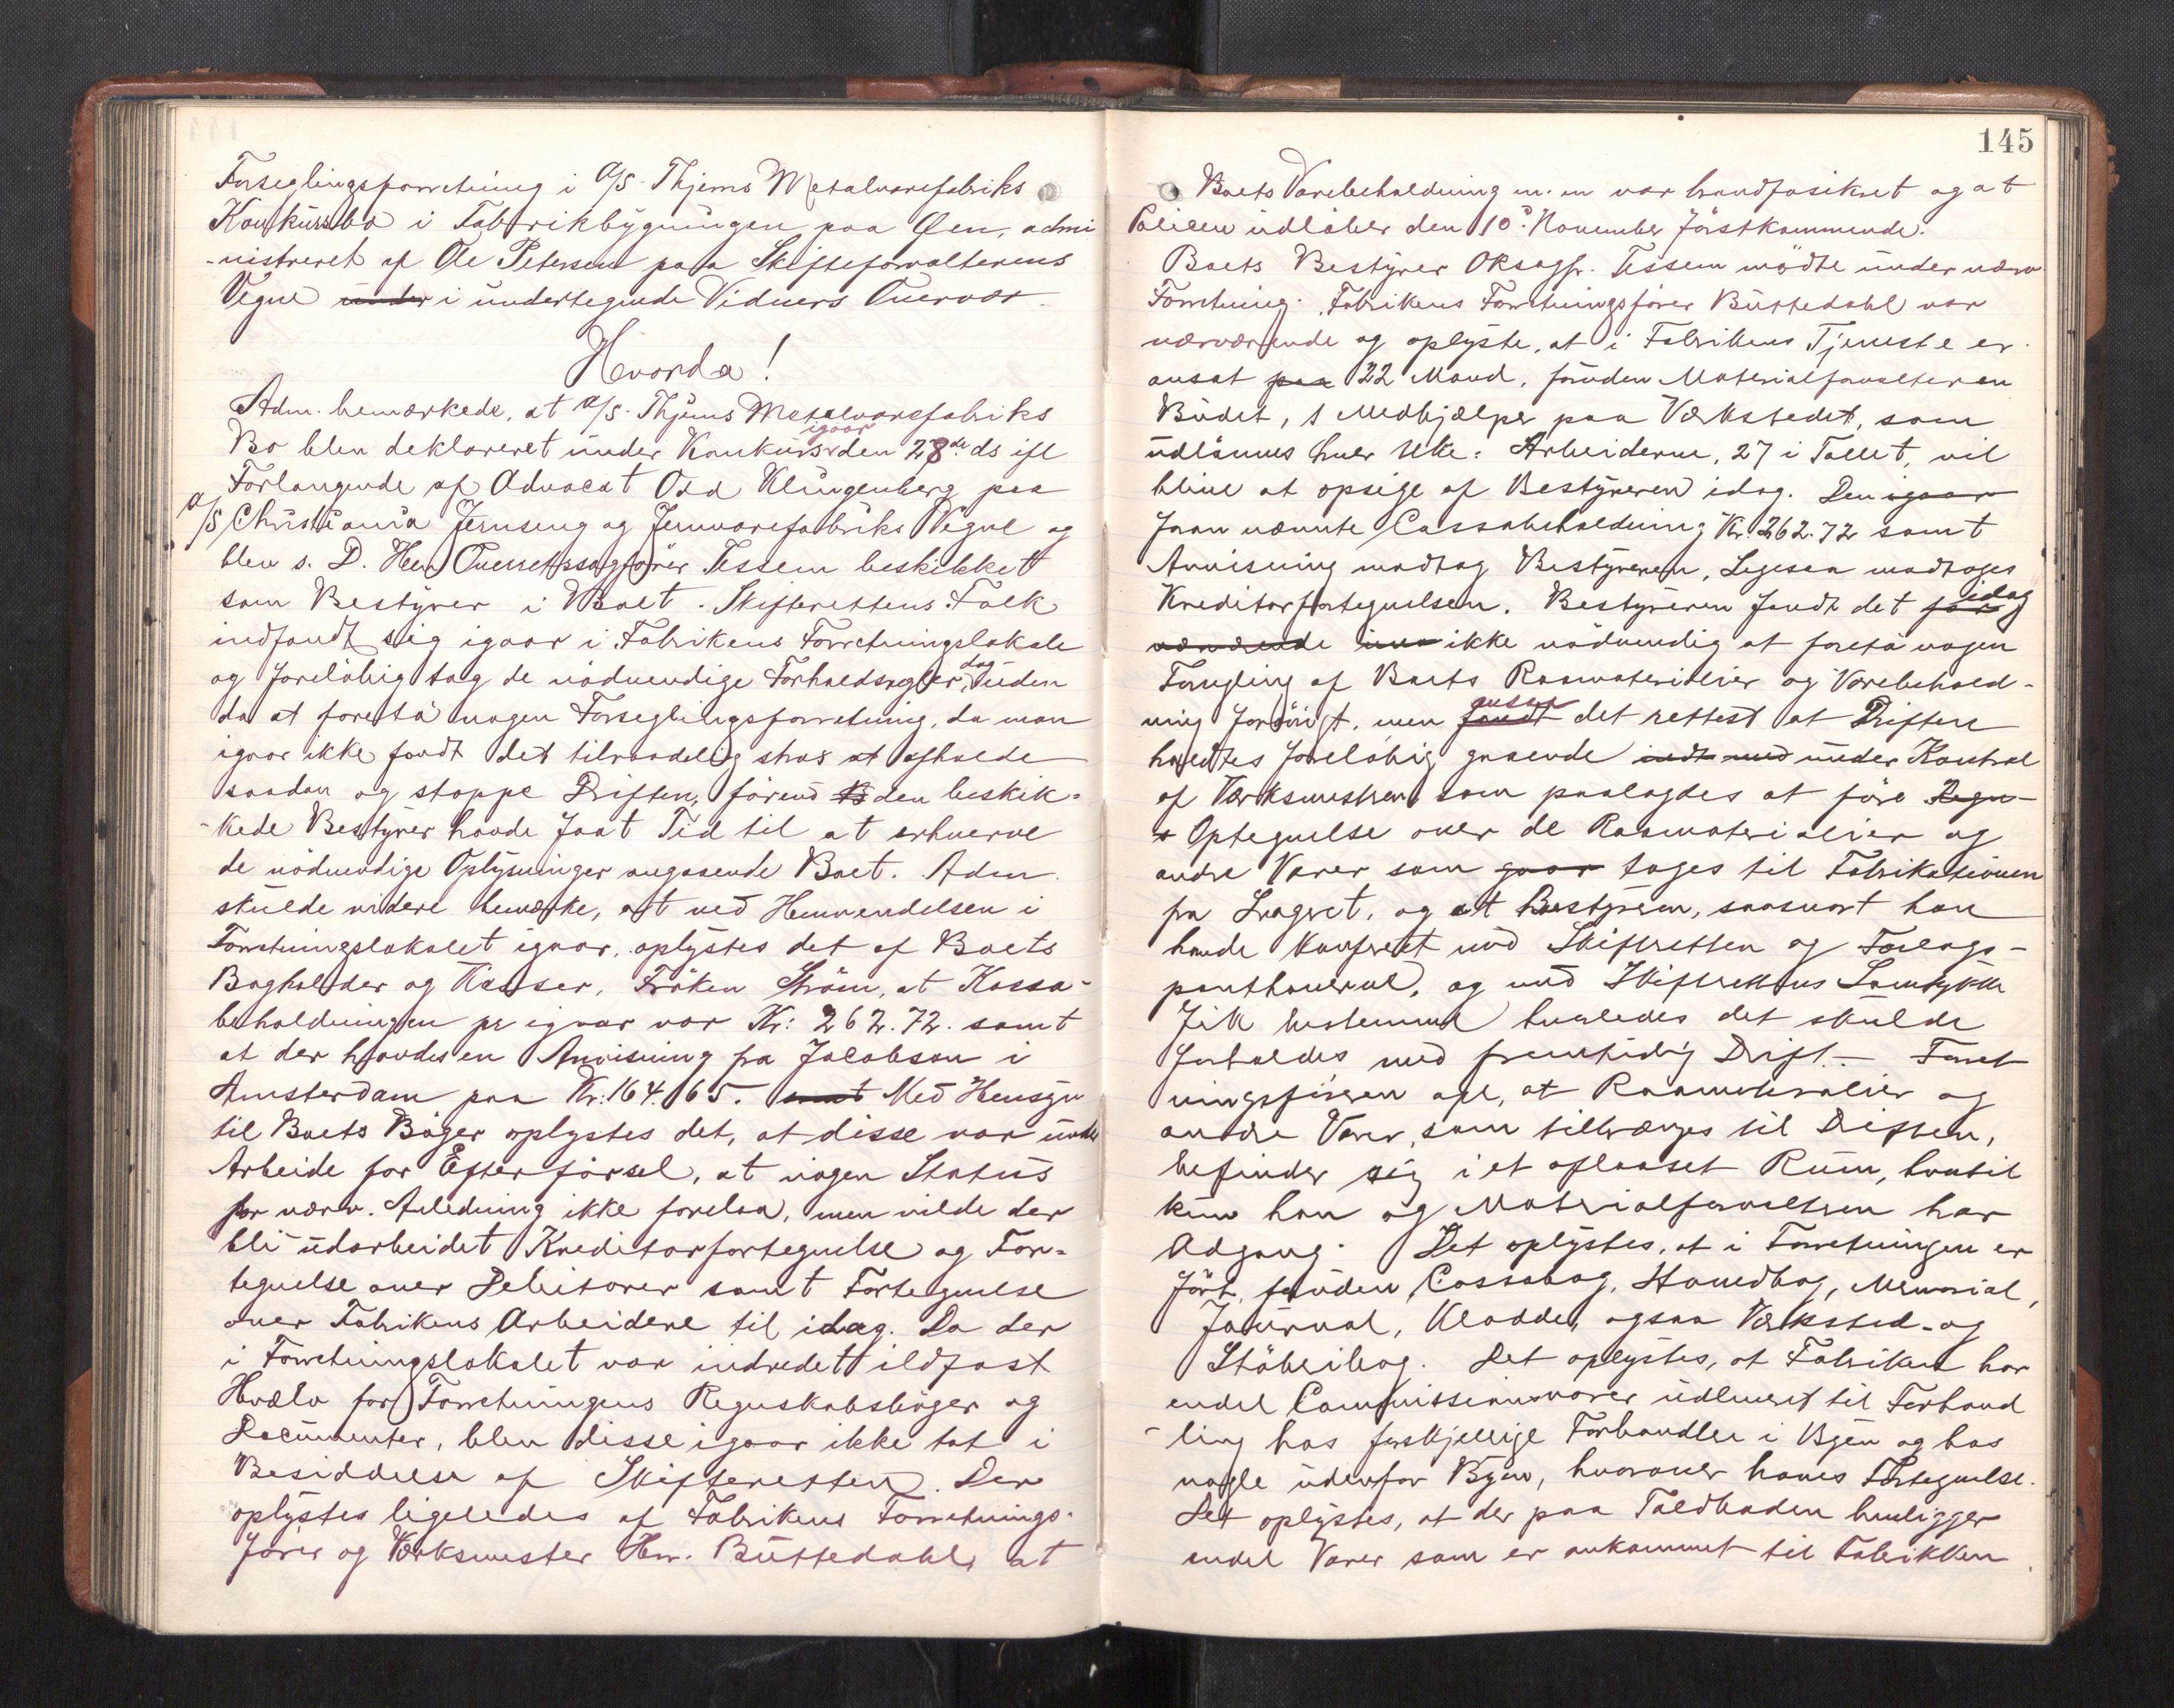 Forseglingsforretning i A/S. Thjems Metalvarefabriks
Konkursbo i Fabrikbygningen paa Øen, admi
-nistreret af Ole Petersen paa Skifteforvalterens
Vegne under i undertegnede Vidners Overvær.
Hvorda!
Adm. bemærkede, at A/S. Thjems Metalvarefabriks
igaar
Bo blev deklareret under Konkurs den 28de ds ifl
Forlangende af Advocat Odd Klingenberg paa
A/S Christiania Jernseng og Jernvarefabriks Vegne og
blev s. D. Herr Overretssagfører Tessem beskikket
som Bestyrer i Boet. Skifterettens Folk
indfandt sig igaar i Fabrikens Forretningslokale
og foreløbig tog de nødvendige Forholdsregler, dog uden
da at foreta nogen Forseglingsforretning, da man
igaar ikke fandt det tilraadelig straks at afholde
saadan og stoppe Driften, førend B den beskik-
-kede Bestyrer havde faat Tid til at erhverve
de nødvendige Oplysninger angaaende Boet. Adm.
skulde videre bemærke, at ved Henvendelsen i
Forretningslokalet igaar, oplystes det af Boets
Bogholder og Kasser, Frøken Strøm, at Kassa-
beholdningen pr igaar var Kr: 262.72. samt
at der havdes en Anvisning fra Jacobson i
Amsterdam paa Kr: 164.65. samt Med Hensyn
til Boets Bøger oplystes det, at disse var under
Arbeide for Efterførsel, at nogen Status
for nærv. Anledning ikke forelaa, men vilde der
bli udarbeidet Kreditorfortegnelse og For-
tegnelse over Debitorer samt Fortegnelse
over Fabrikens Arbeidere til idag. Da der
i Forretningslokalet var indredet ildfast
Hvælv for Forretningens Regnskabsbøger og
Documenter, blev disse igaar ikke tat i
Besiddelse af Skifteretten. Der
oplystes ligeledes af Fabrikens Forretnings-
fører og Værksmester Herr. Buttedahl, at
145
Boets Varebeholdning m. m var brandfasikret og at
Policen udløber den 10d November førstkommende.
Boets Bestyrer ORsagfr. Tessem mødte under nærv.
Forretning. Fabrikens Forretningsfører Buttedahl var
nærværende og oplyste, at i Fabrikens Tjeneste er
ansat paa 22 Mand, foruden Materialforvalteren
Budet, 1 Medhjælper paa Værkstedet, som
udlønnes hver Uke: Arbeiderne, 27 i Tallet, vil
blive at opsige af Bestyreren idag. Den igaar
foran nævnte Cassabeholdning Kr. 262.72 samt
Anvisning modtog Bestyreren, Ligesaa modtoges
Kreditorfortegnelsen. Bestyreren fandt det for idag
nærværende ikke nødvendig at foreta nogen
Forsegling af Boets Raamaterialier og Varebehold-
ansaa
ning forøvrigt, men fandt det rettest at Driften
holdtes foreløbig gaaende indt med under Kontrol
af Værksmesteren som paalagdes at føre Regn-
Optegnelse over de Raamaterialier og
andre Varer som gaar tages til Fabrikationen
fra Lageret, og at Bestyreren, saasnart han
havde konfereret med Skifteretten og Forlags-
panthaverne, og med Skifterettens Samtykke
fik bestemme hvorledes det skulde
forholdes med fremtidig Drift.- Forret
ningsføreren opl, at Raamaterialier og
andre Varer, som tiltrænges til Driften,
befinder sig i et aflaaset Rum, hvortil
kun han og Materialforvalteren har
Adgang. Det oplystes, at i Forretningen er
ført, foruden Cassabog, Hovedbog, Memorial,
Journal, Kladde, ogsaa Værksted- og
Støberibog. Det oplystes, at Fabriken har
endel Commissionsvarer udleveret til Forhand
-ling hos forskjellige Forhandler i Byen og hos
nogle udenfor Byen, hvorover haves Fortegnelse.
Det oplystes, at der paa Toldboden henligger
endel Varer som er ankommet til Fabrikken